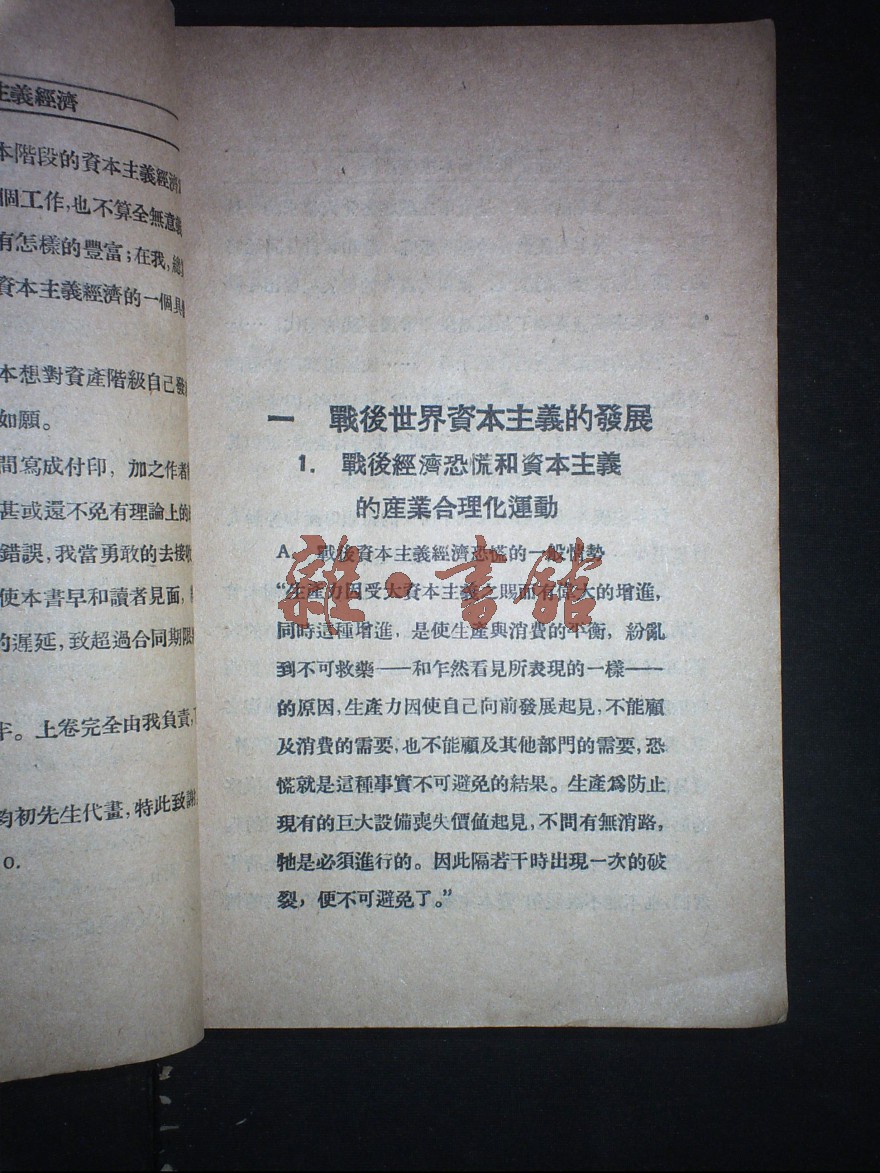 主義經濟
本階段的資本主義經濟
個工作,也不算全無意義
有怎樣的豐富;在我,總
資本主義經濟的一個具
本想對資產階級自己發
如願。
間寫成付印, 加之作者
甚或還不免有理論上的
錯誤,我當勇敢的去接收
使本書早和讀者見面,
的遲延,致超過合同期限
。上卷完全由我負責,
初先生代畫,特此致謝
0.
一 戰後世界資本主義的發展
1. 戰後經濟恐慌和資本主義
的產業合理化運動
A. 戰後資本主義經濟恐慌的一般情勢
“生產力因受大資本主義之賜而有偉大的增進,
同時這種增進, 是使生產與消費的平衡, 紛亂
到不可救藥——和乍然看見所表現的一樣——
的原因,生產力因使自己向前發展起見,不能顧
及消費的需要,也不能顧及其他部門的需要,恐
慌就是這種事實不可避免的結果。生產爲防止
現有的巨大設備喪失價值起見,不問有無消路,
牠是必須進行的。因此隔若干時出現一次的破
裂, 便不可避免了。”
雜·書館